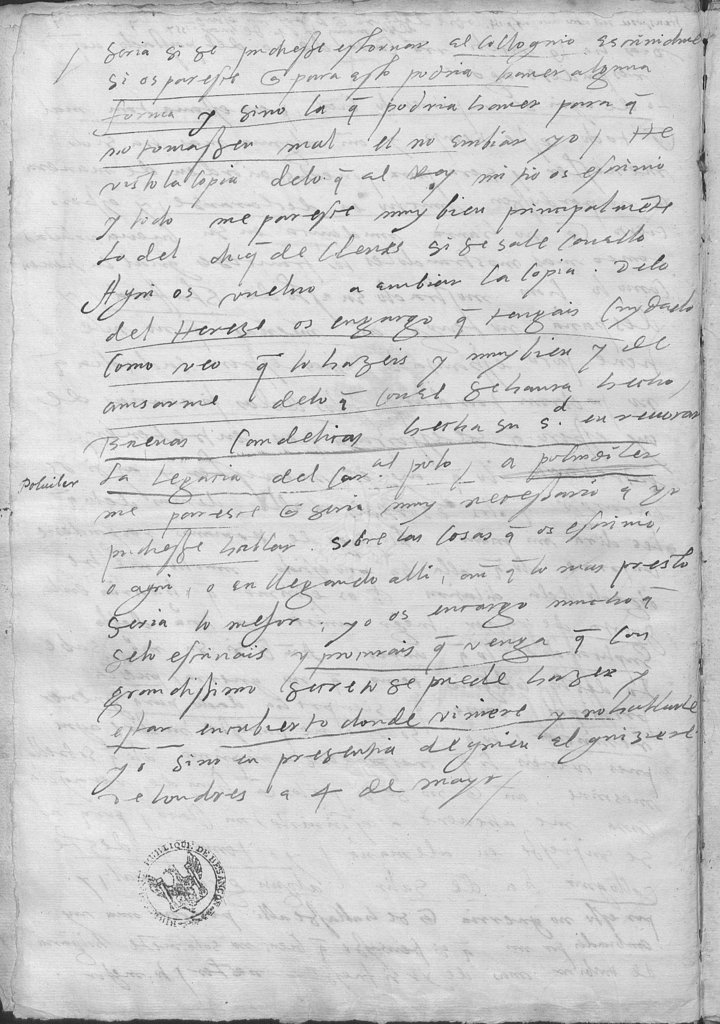 seria si se pudiesse estornar el colloquio escriuidme
si os paresce q̃ para esto podria hauer alguna
forma y sino la q̃ podria hauer para q̃
no tomassen mal el no embiar yo / He
visto la copia delo q̃ al Rey mi tio os escriuio
y todo me paresce muy bien principalmẽte
lo del duq̃ de Cleues si se sale conello
Aqui os vueluo a embiar la copia. Delo
del Hereze os encargo q̃ tengais cuydado
como veo q̃ lo hazeis y muy bien y de
auisarme delo q̃ conel se haura hecho /
Buenas Candelicas hecha su s.d en reuocar
la legacia del Car.al polo / a poluiler
Poluiler
me paresce q̃ seria muy necessario q̃ yo
pudiesse hablar. sobre las cosas q̃ os escriuio,
o aqui, o en llegando alli, aũ q̃ lo mas presto
seria lo mejor, yo os encargo mucho q̃
selo escriuais y procurais q̃ venga q̃ con
grandissimo secreto se puede hazer y
estar encubierto donde viniere y no hablarle
yo sino en presentia de quien el quisiere.
De londres a 4 de mayo /
BIBLIOTHEQUE PUBLIQUE DE BESANÇON